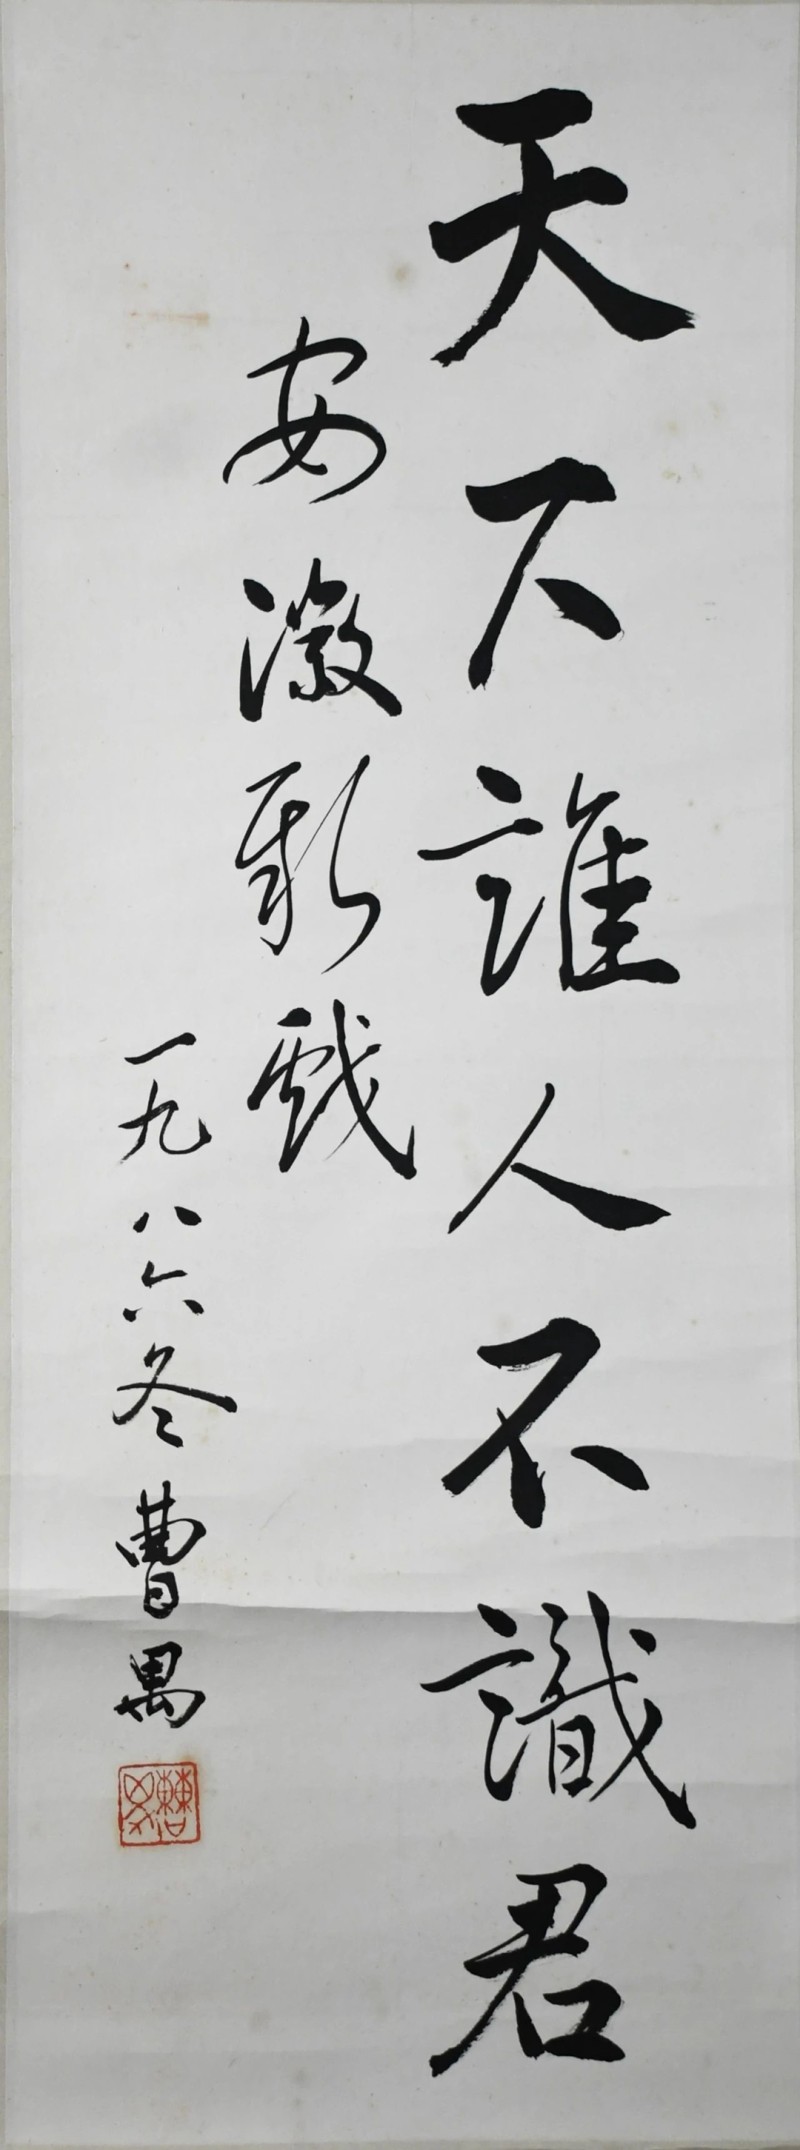 天下誰人不識君
安徽新戏
一九八六冬 曹禺
曹禺